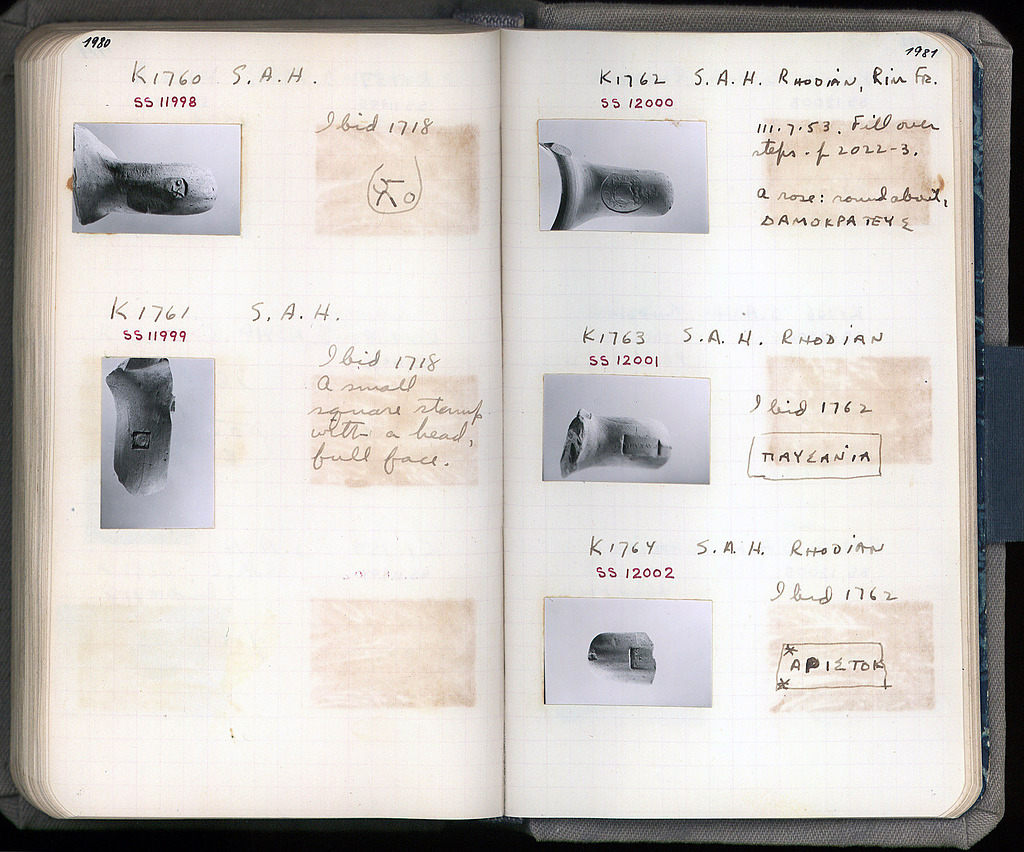 1980
K1760 S.A.H.
SS 11998
Ibid 1718
K1761 S.A.H.
SS 11999
Ibid 1718
A small
square stamp
with a head,
full face.
1981
K1762 S.A.H. RHODIAN, RIM FR.
SS 12000
111.7.53. Fill over
steps. p 2022-3.
A rose: round about,
ΔΑΜΟΚΡΑΤΕΥΣ
K1763 S.A.H. RHODIAN
SS 12001
Ibid 1762
ΠΑΥΣΑΝΙΑ
K1764 S.A.H. RHODIAN
SS 12002
Ibid 1762
ΑΡΙΣΤΟΚ